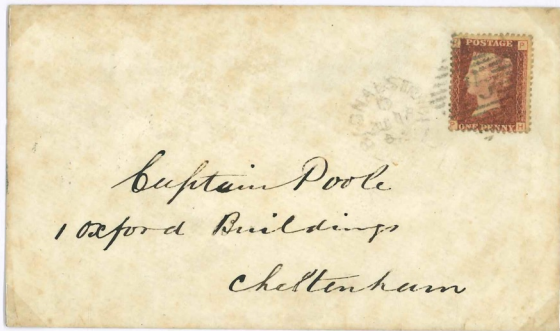 POSTAGE
ONE PENNY
Captain Poole
1 Oxford Buildings
Cheltenham